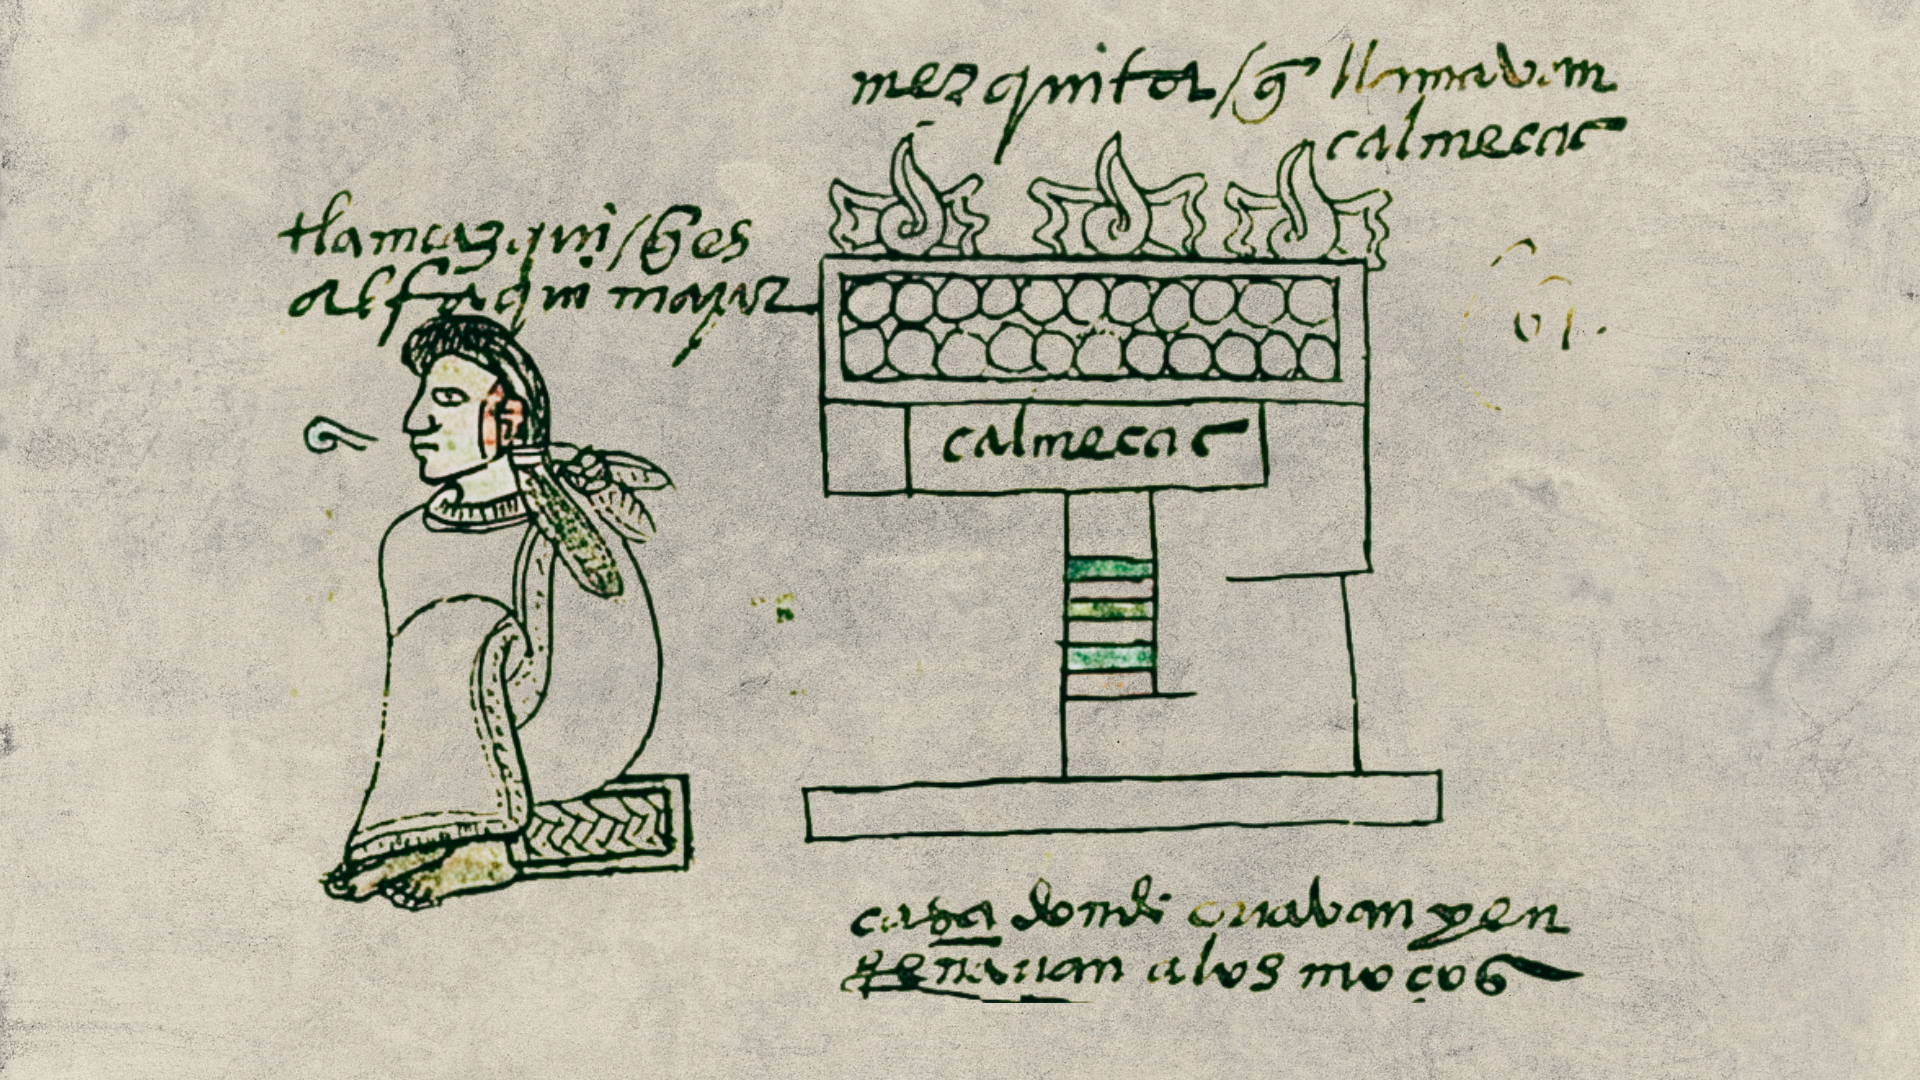 mezquita / q̃ llamavan
calmecac
tlamcazqui / q̃ es
alfaqui mayor
calmecac
61.
casa donde criavan y en
señavan a los moços